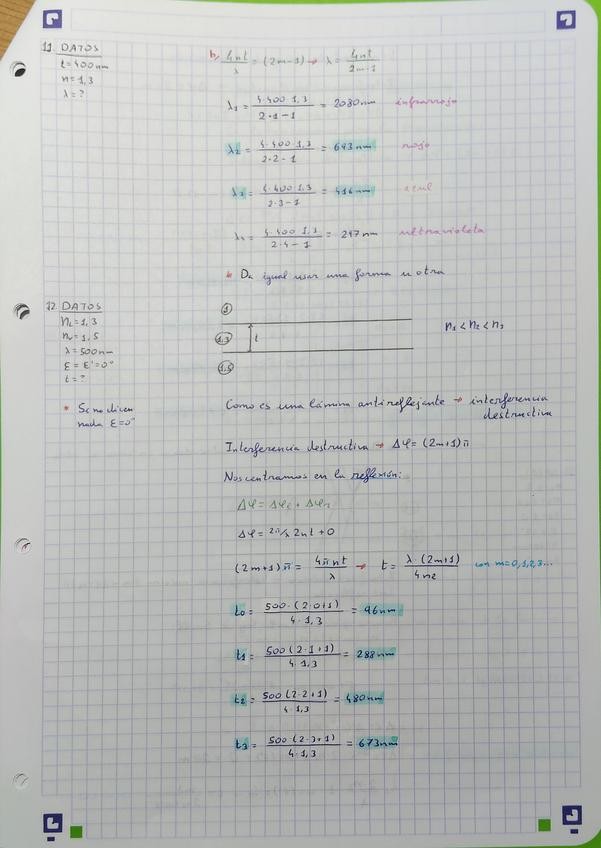 11. DATOS
t = 400 nm
n = 1,3
λ = ?
b) 4nt/λ = (2m-1) → λ = 4nt/2m-1
λ₁ = 4·400·1,3/2·1-1 = 2080nm infrarrojo
λ₂ = 4·400·1,3/2·2-1 = 693nm rojo
λ₃ = 4·400·1,3/2·3-1 = 416nm azul
λ₄ = 4·400·1,3/2·4-1 = 297nm ultravioleta
* Da igual usar una forma u otra
12. DATOS
n = 1,3
n = 1,5
λ = 500nm
ε = ε' = 0°
t = ?
* Si no dicen
nada ε=0°
1
1,3 t
1,5
n₁ < n₂ < n₃
Como es una lámina antireflejante → interferencia
destructiva
Interferencia destructiva → Δφ = (2m+1)π
Nos centramos en la reflexión:
Δφ = Δφ + Δφ
Δφ = 2π/λ 2nt + 0
(2m+1)π = 4πnt/λ → t = λ·(2m+1)/4n₂ con m=0,1,2,3...
t₀ = 500·(2·0+1)/4·1,3 = 96nm
t₁ = 500(2·1+1)/4·1,3 = 288nm
t₂ = 500(2·2+1)/4·1,3 = 480nm
t₃ = 500·(2·3+1)/4·1,3 = 673nm